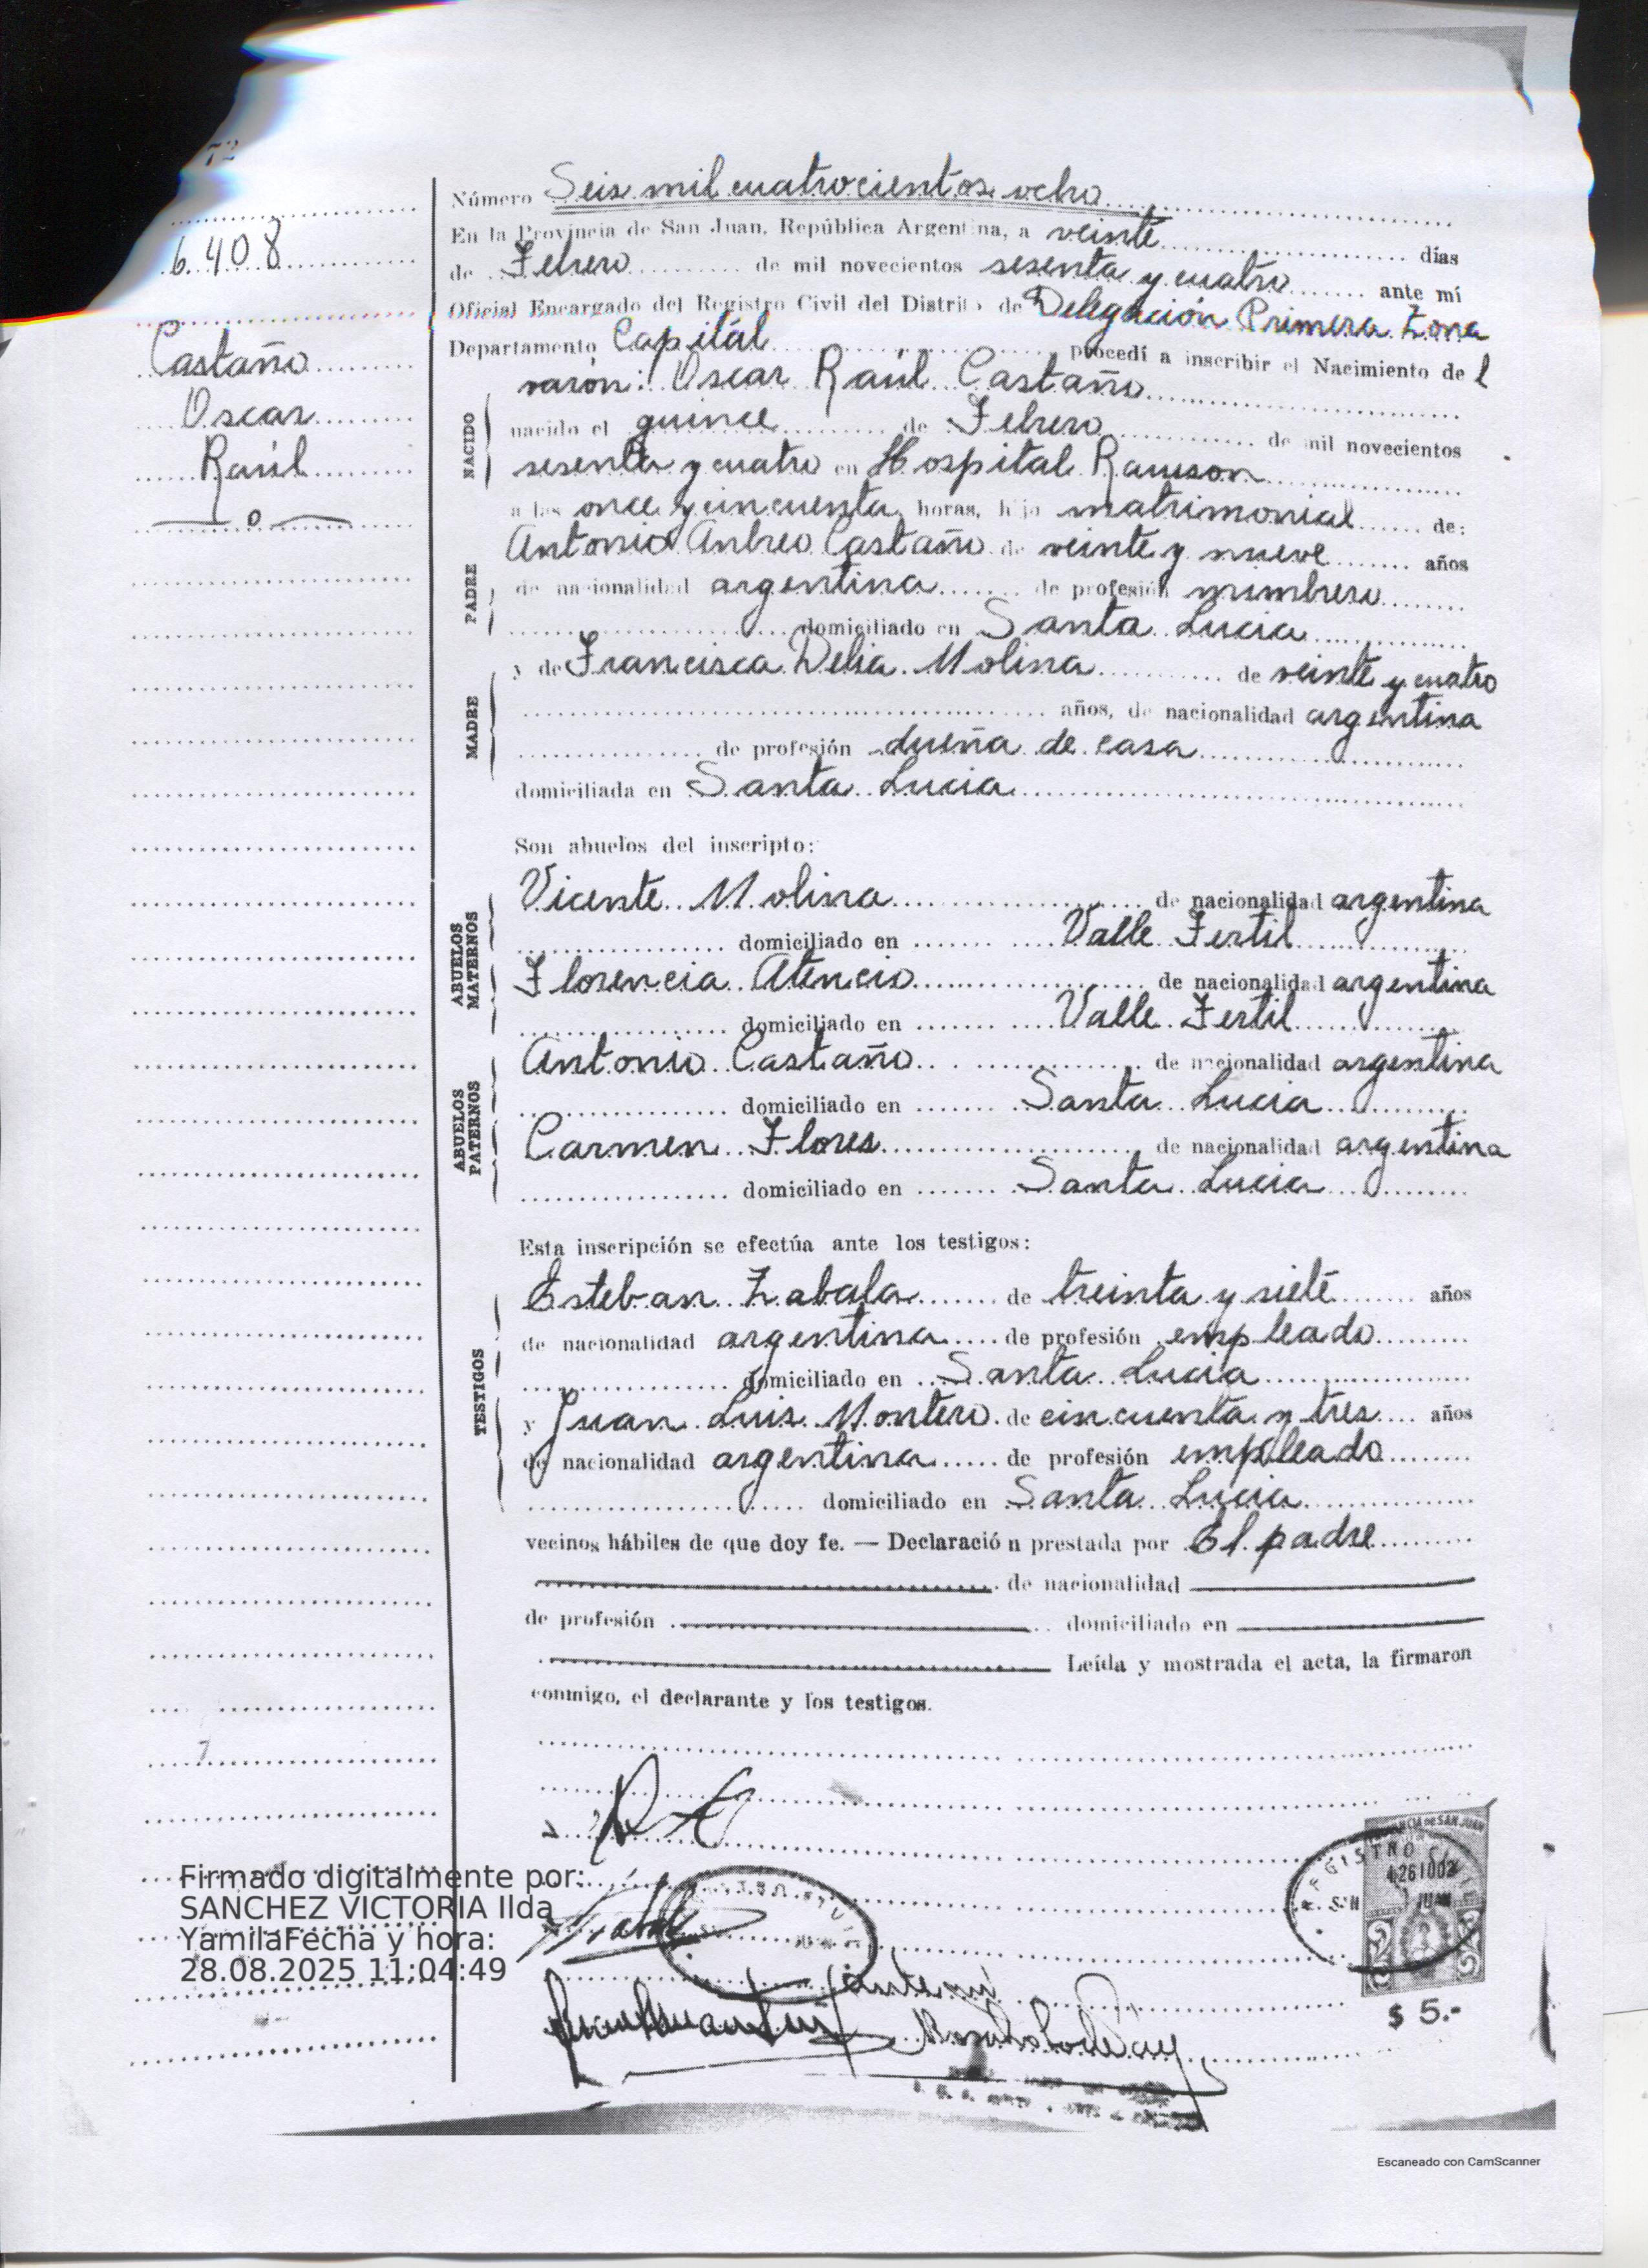 72
6.408
Castaño
Oscar
Raúl
Número Seis mil cuatrocientos ocho
En la Provincia de San Juan, República Argentina, a veinte días
de Febrero de mil novecientos sesenta y cuatro ante mí
Oficial Encargado del Registro Civil del Distrito de Delegación Primera Zona
Departamento Capitál procedí a inscribir el Nacimiento de l
varón: Oscar Raúl Castaño
NACIDO
nacido el quince de Febrero de mil novecientos
sesenta y cuatro en Hospital Rawson
a las once y cincuenta horas, hijo matrimonial de:
PADRE
Antonio Castaño de veinte y nueve años
de nacionalidad argentina de profesión mimbrero
domiciliado en Santa Lucia
MADRE
y de Francisca Delia Molina de veinte y cuatro
años, de nacionalidad argentina
de profesión dueña de casa
domiciliada en Santa Lucia
Son abuelos del inscripto:
ABUELOS MATERNOS
Vicente Molina de nacionalidad argentina
domiciliado en Valle Fertil
Florencia Atencio de nacionalidad argentina
domiciliado en Valle Fertil
ABUELOS PATERNOS
Antonio Castaño de nacionalidad argentina
domiciliado en Santa Lucia
Carmen Flores de nacionalidad argentina
domiciliado en Santa Lucia
Esta inscripción se efectúa ante los testigos:
TESTIGOS
Esteban Zabala de treinta y siete años
de nacionalidad argentina de profesión empleado
domiciliado en Santa Lucia
y Juan Luis Montero de cincuenta y tres años
de nacionalidad argentina de profesión empleado
domiciliado en Santa Lucia
vecinos hábiles de que doy fe. — Declaración prestada por El padre
de nacionalidad
de profesión domiciliado en
Leída y mostrada el acta, la firmaron
conmigo, el declarante y los testigos.
Firmado digitalmente por:
SANCHEZ VICTORIA Ilda
YamilaFecha y hora:
28.08.2025 11:04:49
ante mi
REGISTRO
SAN JUAN
$ 5.-
Escaneado con CamScanner